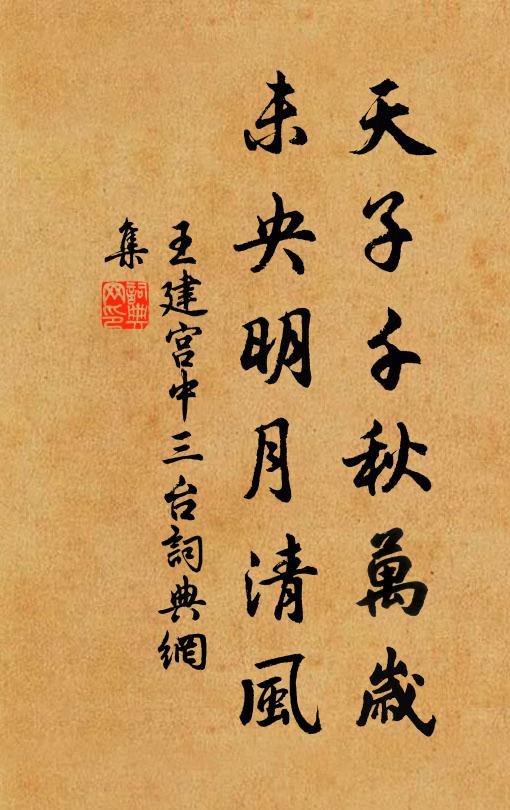 天子千秋萬歲
未央明月清風
王建宮中三台詞典網
集
詞典網印